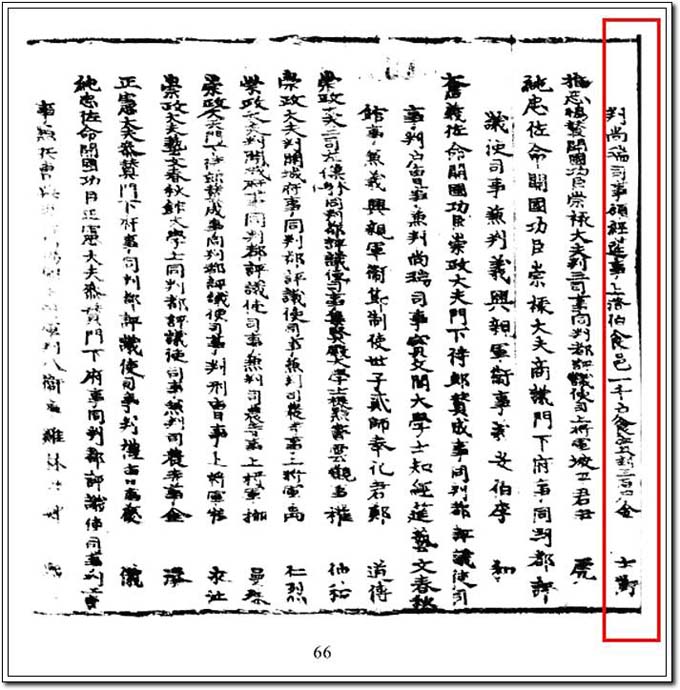 判尚瑞司事領經筵事上洛伯食邑一千戶食實封三百戶金 士衡
推忠協贊開國功臣崇祿大夫判三司事同判都評議使司上將軍坡平君尹 虎
純忠佐命開國功臣崇祿大夫商議門下府事同判都評
議使司事兼判義興親軍衛事義安伯李 和
奮義佐命開國功臣崇政大夫門下侍郎贊成事同判都評議使司
事判戶曹事兼判尚瑞司事寶文閣大學士知經筵藝文春秋
館事兼義興親軍衛節制使世子貳師奉化君鄭 道傳
崇政大夫三司左僕射同判都評議使司事集賢殿大學士提點書雲觀事權 仲和
崇政大夫判開城府事同判都評議使司事兼判司農寺事上將軍禹 仁烈
崇政大夫判開城府事同判都評議使司事兼判司農寺事上將軍柳 曼殊
崇政大夫門下侍郎贊成事同判都評議使司事判刑曹事上將軍崔 永沚
崇政大夫藝文春秋館大學士同判都評議使司事兼判司農寺事金 湊
正憲大夫參贊門下府事同判都評議使司事判禮曹事慶 儀
純忠佐命開國功臣正憲大夫參贊門下府事同判都評議使司事判工曹
事 雞林
66